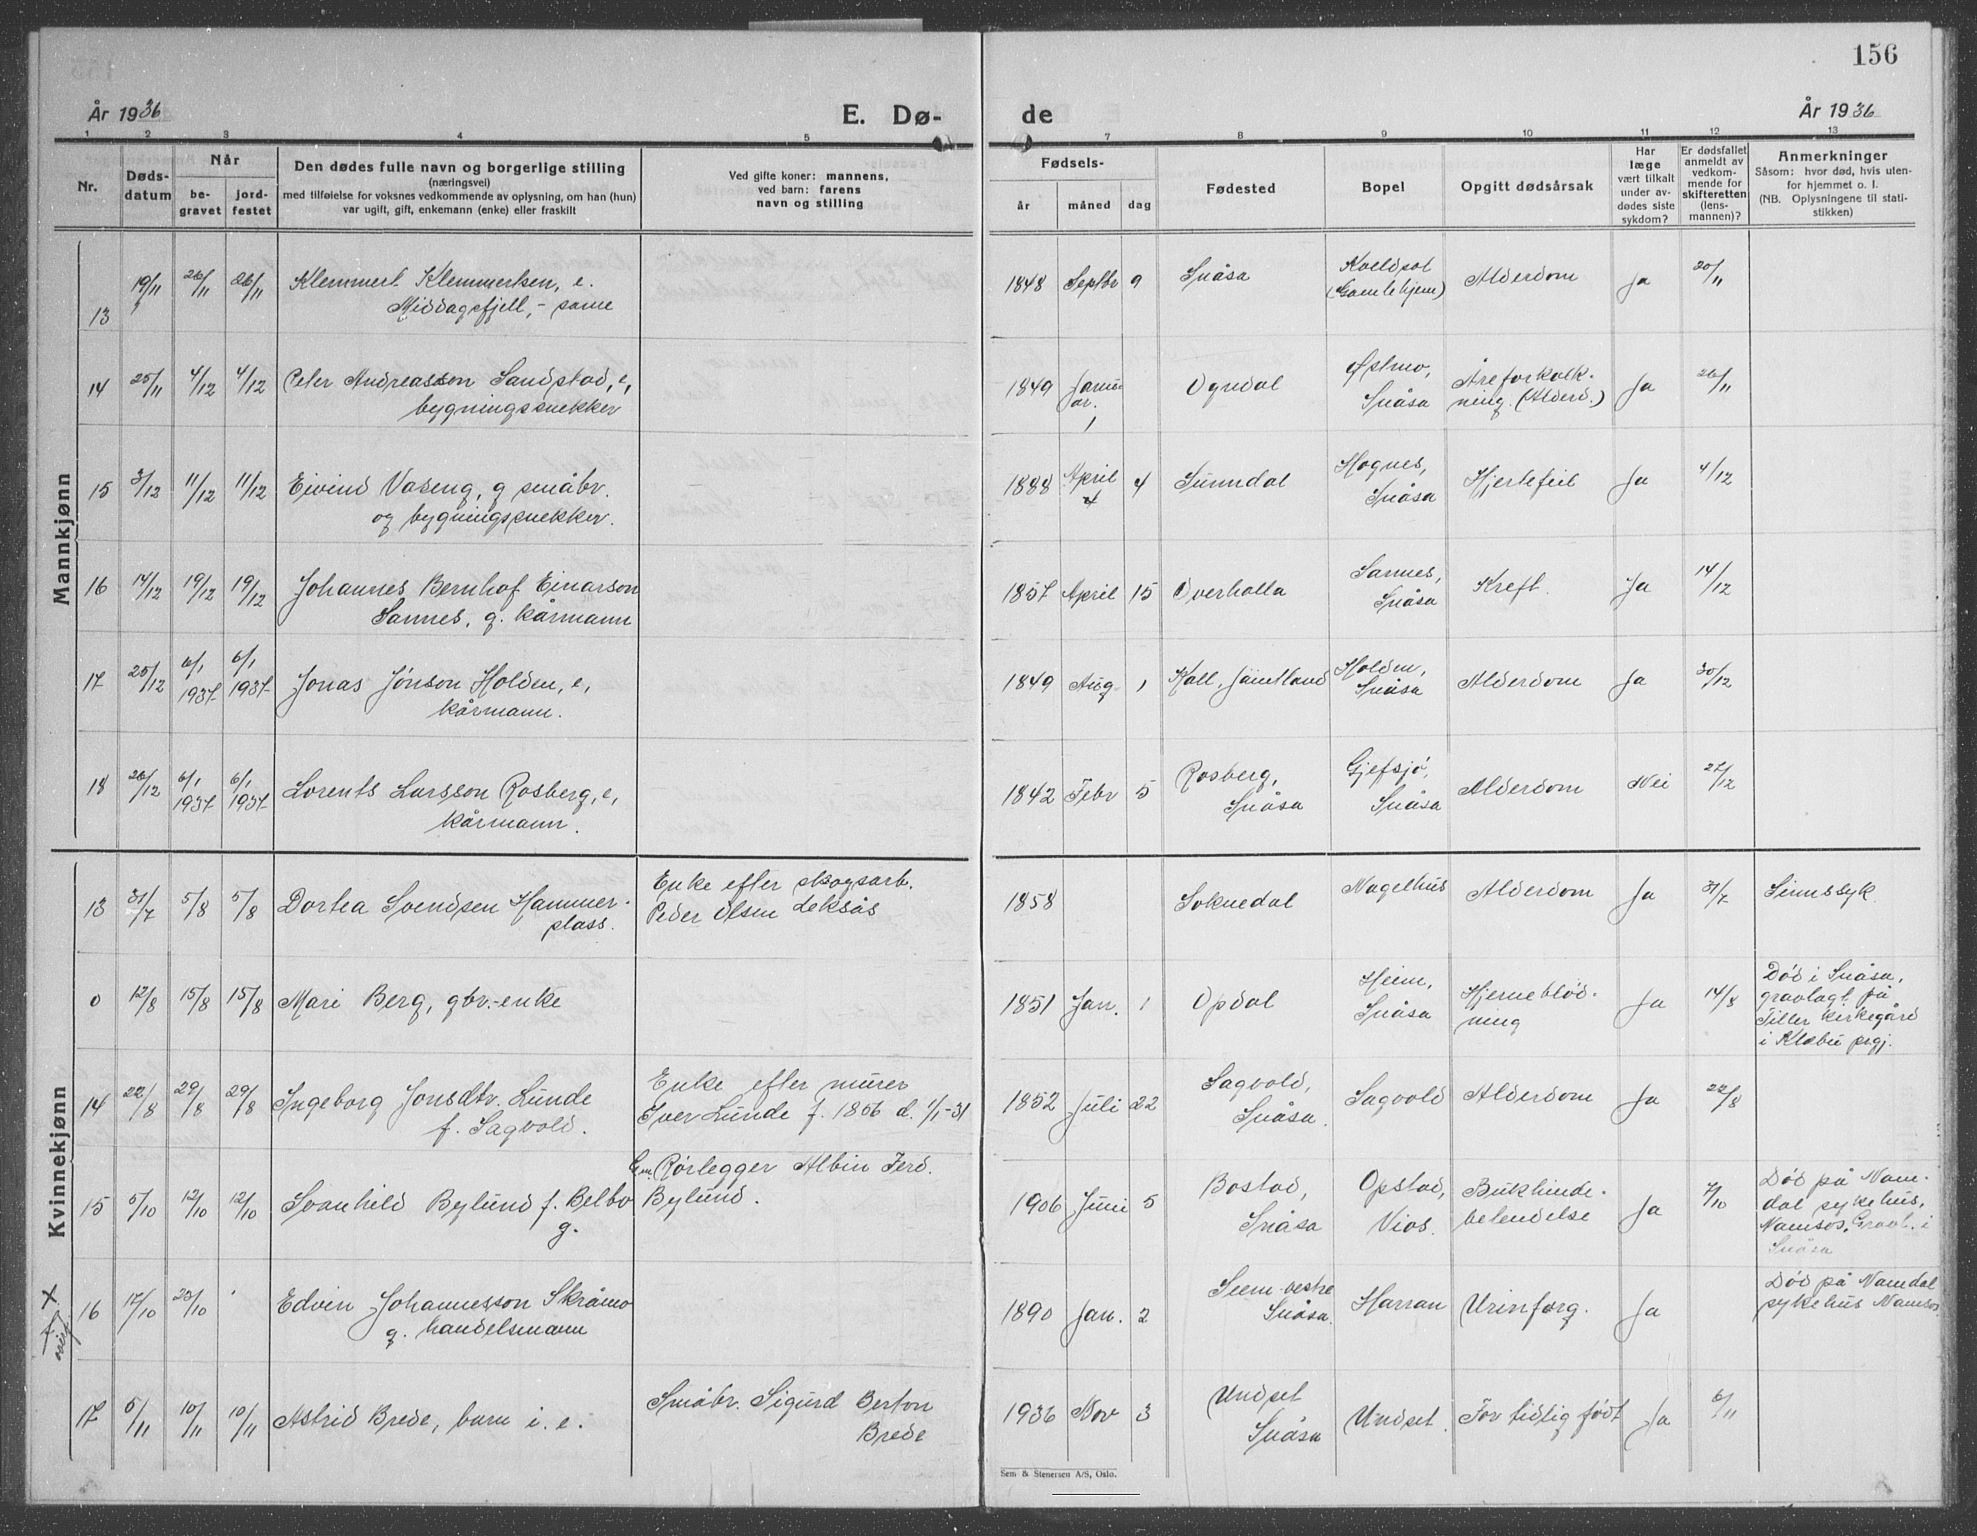 156
År 1936
E. Dø-
de
År 1936
1 2 3 4 5 7 8 9 10 11 12 13
Nr.
Døds-
datum
Når
be-
gravet
jord-
festet
Den dødes fulle navn og borgerlige stilling
(næringsvei)
med tilføielse for voksnes vedkommende av oplysning, om han (hun)
var ugift, gift, enkemann (enke) eller fraskilt
Ved gifte koner: mannens,
ved barn: farens
navn og stilling
Fødsels-
år måned dag
Fødested
Bopel
Opgitt dødsårsak
Har
læge
vært tilkalt
under av-
dødes siste
sykdom?
Er dødsfallet
anmeldt av
vedkom-
mende for
skifteretten
(lens-
mannen)?
Anmerkninger
Såsom: hvor død, hvis uten-
for hjemmet o. l.
(NB. Oplysningene til stati-
stikken)
Mannkjønn
13 19/11 26/11 26/11 Klemmert Klemmertsen, e.
Middagsfjell, - same
1848 Septbr 9 Snåsa
Kveldsol
(Gamlehjem)
Alderdom Ja 20/11
14 25/11 4/12 4/12 Peter Andreasson Sandstad, e,
bygningssnekker
1849 Janu-
ar. 1
Ogndal
Østmo,
Snåsa
Åreforkalk-
ning. (Alderd.)
Ja 26/11
15 3/12 11/12 11/12 Eivind Vaseng, g småbr.
og bygningssnekker.
1888 April 4 Sunndal
Hognes,
Snåsa
Hjertefeil Ja 4/12
16 14/12 19/12 19/12 Johannes Bernhof Einarson
Sannes, g. kårmann
1857 April 15 Overhalla
Sannes,
Snåsa
Kreft. Ja 14/12
17 25/12 6/1 1937 6/1 1937 Jonas Jónson Holden, e,
kårmann.
1849 Aug. 1 Kall, Jämtland
Holden,
Snåsa
Alderdom Ja 30/12
18 26/12 6/1 1937 6/1 1937 Lorents Larsson Rosberg, e,
kårmann.
1842 Febr 5
Rosberg,
Snåsa
Gjefsjø,
Snåsa
Alderdom Nei 27/12
Kvinnekjønn
13 31/7 5/8 5/8 Dortea Svendsen Hammer-
plass.
Enke efter skogsarb.
Peder Olsen Leksås
1858 Soknedal Nagelhus Alderdom Ja 31/7 Sinnssyk.
0 12/8 15/8 15/8 Mari Berg, gbr.-enke
1851 Jan. 1 Opdal
Heim,
Snåsa
Hjerneblød-
ning
Ja 14/8
Död i Snåsa,
gravlagt på
Tiller kirkegård
i Klæbu prgj.
14 22/8 29/8 29/8 Ingeborg Jonsdtr. Lunde
f. Sagvold.
Enke efter murer
Iver Lunde f. 1856 d. 1/1-31
1852 Juli 22
Sagvold,
Snåsa.
Sagvold Alderdom Ja 22/8
15 5/10 12/10 12/10 Svanhild Bylund f. Belbo
g.
Gm. Rørlegger Albin Ferd.
Bylund.
1906 Juni 5
Bostad,
Snåsa
Opstad,
Vios.
Bukhinde-
betendelse
Ja 7/10
Död på Nam-
dal sykehus,
Namsos. Gravl. i
Snåsa
16 17/10 23/10 Edvin Johannesson Skråmo
g. handelsmann
1890 Jan. 2
Seem vestre
Snåsa.
Harran Urinforg. Ja
Död på Namdal
sykehus Namsos
17 5/11 10/11 10/11 Astrid Brede, barn i. e.
Småbr. Sigurd Berton
Brede
1936 Nov 3
Undset
Snåsa
Undset. For tidlig født Ja 6/11
Sem & Stenersen A/S, Oslo.